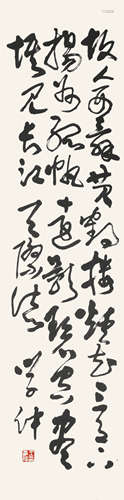 故人西辭黄鶴樓烟花三月下
揚州孤帆遠影碧空盡
惟見長江天際流 學仲